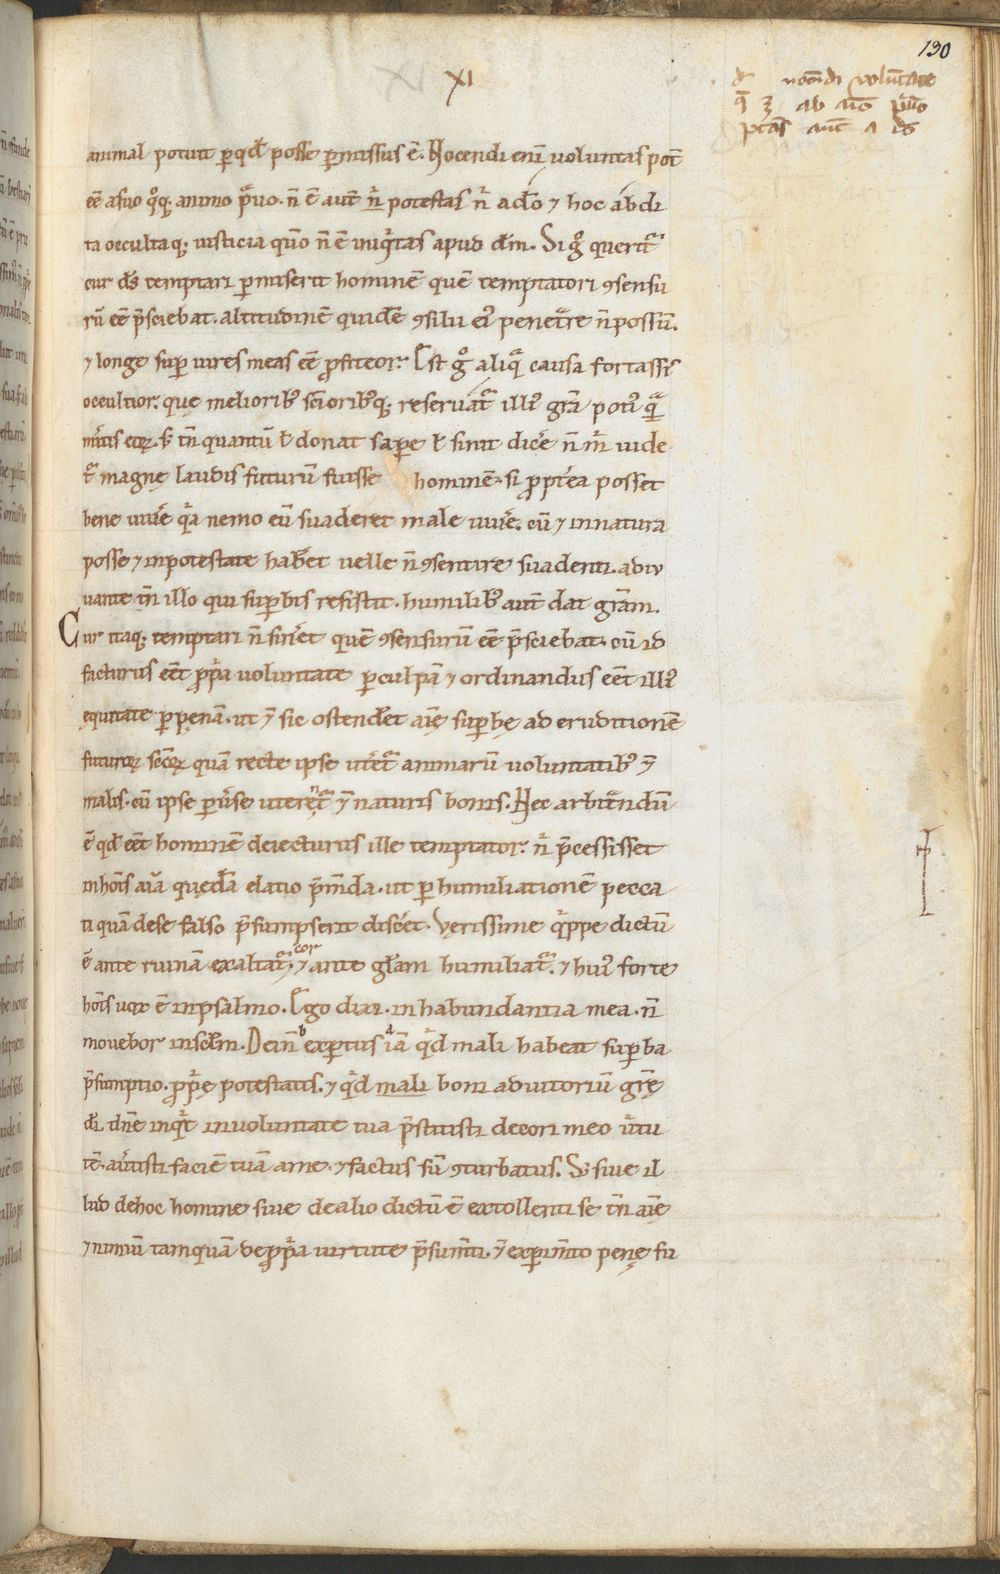 130
XI
nocendi volūtate
ab
animal potuit ꝑ qđ posse ꝑmissus ē. Nocendi enī voluntas pot̄
eē a suo q̊q; animo p̄uo. n̄ ē aut̄ n̄ potestas n̄ a dō ⁊ hoc abdi
ta occultaq; iusticia quō n̄ ē iniq̇tas apud dm̄. Si g̊ querit᷑
cur ds̄ temptari ꝑmiserit hominē quē temptatori ꝯsensu
rū eē p̄sciebat. altitudinē quidē ꝯsilii eiꝰ penet̃re n̄ possū.
⁊ longe suꝑ uires meas eē ꝓfiteor. Est g̊ aliq̃ causa fortassis
occultior. quę melioribꝰ sc̄ioribꝰq; reseruat᷑ illiꝰ gr̄a potiꝰ q̃
mītis eoꝝ. s; tn̄ quantū ł donat saꝑe ł sinit dic̄e n̄ m̄ uide
t᷑ magnę laudis futurū fuisse hominē. si ꝓpt̄ea posset
bene uiu̇e q̇a nemo eū suaderet male uiu̇e. cū ⁊ in natura
posse ⁊ in potestate hab̄et uelle n̄ ꝯsentire suadenti. adiu
uante tn̄ illo qui suꝑbis resistit. humilibꝰ aut̄ dat gr̄am.
Cur itaq; temptari n̄ sin̄et quē ꝯsensurū eē p̄sciebat. cū id
facturus eēt ꝓṗa voluntate ꝑ culpā ⁊ ordinandus eēt illiꝰ
ęquitate ꝑ penā. ut ⁊̄ sic ostend̄et aīę suꝑbę ad eruditionē
futuroꝝ sc̄oꝝ quā recte ipse ut̄et᷑ animarū voluntatibꝰ ⁊̄
malis. cū ipse ꝑu̇se uterent᷑ ⁊̄ naturis bonis. Nec arbit̃ndū
ē qđ eēt hominē deiecturus ille temptator. n̄ p̄cessisset
in hōis aīa quędā elatio p̄m̄da. ut ꝑ humiliationē pecca
ti quā de se falso p̄sumpserit disc̄et. Verissime q̇ppe dictū
ē ante ruinā exaltat᷑ cor ⁊ ante głam humiliat᷑. ⁊ huiꝰ forte
hōis uox ē in psalmo. Ego dixi. in habundantia mea. n̄
movebor in sc̄lm. Dein̄ b exꝑtus a iā q̇d mali habeat suꝑba
p̄sumptio. ꝓṗę potestatis. ⁊ q̇d mali boni adiutoriū gr̄ę
di. dn̄e inq̇t in voluntate tua p̄stitisti decori meo u̇tu
tē. au̇tisti faciē tuā a me. ⁊ factus sū ꝯturbatus. S; siue il
lud de hoc homine siue de alio dictū ē extollenti se tn̄ aīę
⁊ nimiū tamquā de ꝓṗa uirtute p̄sum̄ti. ⁊̄ exꝑim̄to penę fu